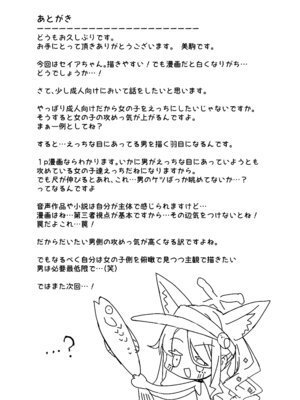 あとがき
どうもお久しぶりです。
お手にとって頂きありがとうございます。 美駒です。
今回はセイアちゃん。描きやすい！でも漫画だと白くなりがち…
どうでしょうか…！
さて、少し成人向けにおいて話をしたいと思います。
やっぱり成人向けだから女の子をえっちにしたいじゃないですか。
そうすると女の子の攻めっ気が上がるんですよ。
まぁ一例としてね？
すると…えっちな目にあってる男を描く羽目になるんです。
1p漫画ならわかります。いかに男がえっちな目にあっていようとも
攻めている女の子達えっちだねになりますから。
でも尺が伸びるとあれ、これ…男のケツばっか眺めてないか…？
ってなるんですよ
音声作品や小説は自分が主体で感じられますけど…
漫画はね…第三者視点が基本ですから…その辺気をつけないとね！
罠だよこれ…罠！
だからだいたい男側の攻めっ気が高くなる訳ですよね。
でもなるべく自分は女の子側を俯瞰で見つつ主観で描きたい
男は必要最低限で…(笑)
ではまた次回…！
…?